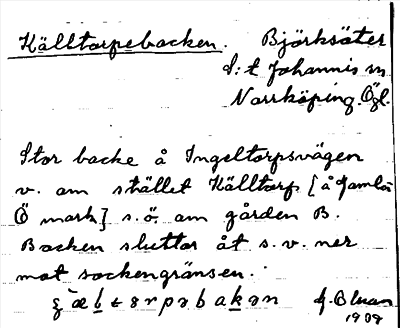 Källtorpsbacken. Björksäter
S:t Johannis sn
Norrköping. Ögl.
Stor backe å Ingeltorpsvägen
v. om stället Källtorp [å Gamla
Ö mark] s.ö. om gården B.
Backen sluttar åt s.v. ner
mot sockengränsen.
1909